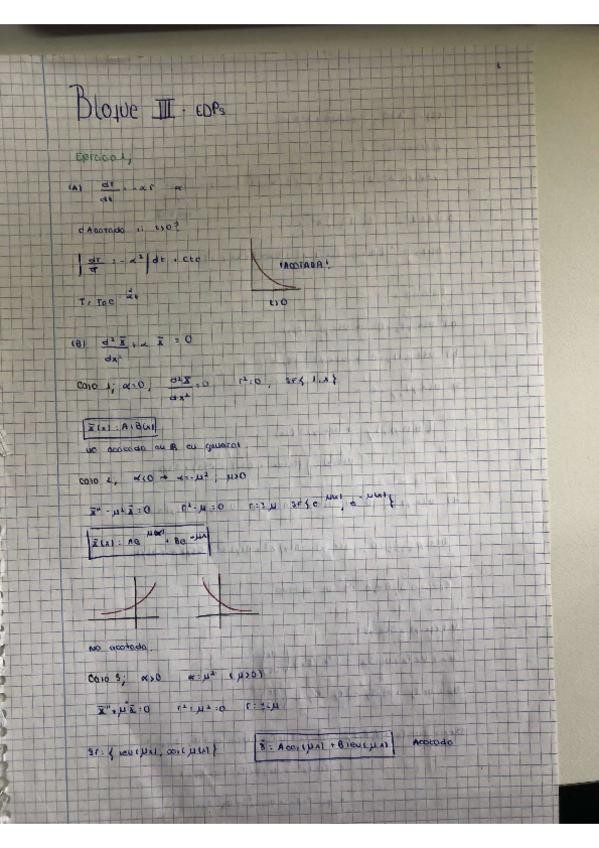 Bloque III - EDPs
Ejercicio 1;
(A) dT/dt = -αT α
¿Acotada si t>0?
∫ dT/T = -α² ∫ dt + Cte
¡ACOTADA!
t>0
(B) d²X/dx² + α X = 0
Caso 1; α=0, d²X/dx² = 0 r²=0, Sf{1,x}
X(x) = A+B(x)
no acotada en R en general.
Caso 2, α<0 → α=-μ², μ>0
X'' - μ²X=0 r²-μ=0 r=±μ Sf{e^μ(x), e^-μ(x)}
X(x) = Ae^μ(x) + Be^-μx
No acotada.
Caso 3; α>0 α=μ² (μ>0)
X''+μ²X=0
Sf={sen(μx), cos(μx)} X = Acos(μx) + Bsen(μx) Acotada